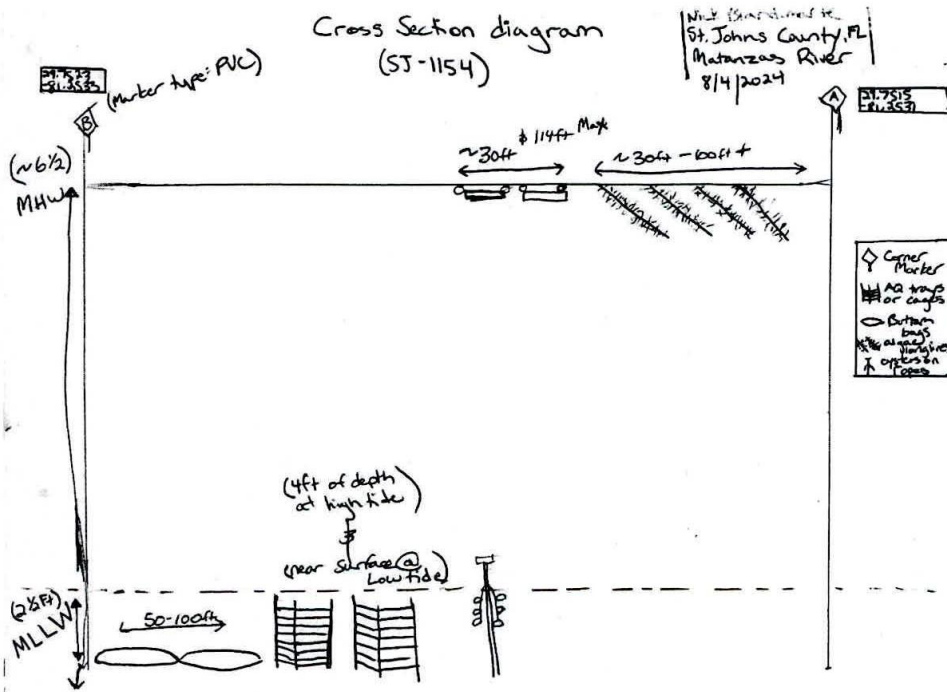 Cross Section diagram
(SJ-1154)
St. Johns County, FL
Matanzas River
8/4/2024
(Marker type: PVC)
B
A
29.7515
-81.2531
(~6½)
MHW
~30ft $ 114ft Max
~30ft-100ft+
Corner
Marker
AQ trays
or cages
Bottom
bags
algae
longlines
ropes
(4ft of depth
at high tide)
(near surface @
Low tide)
(2½ft)
MLLW
50-100ft